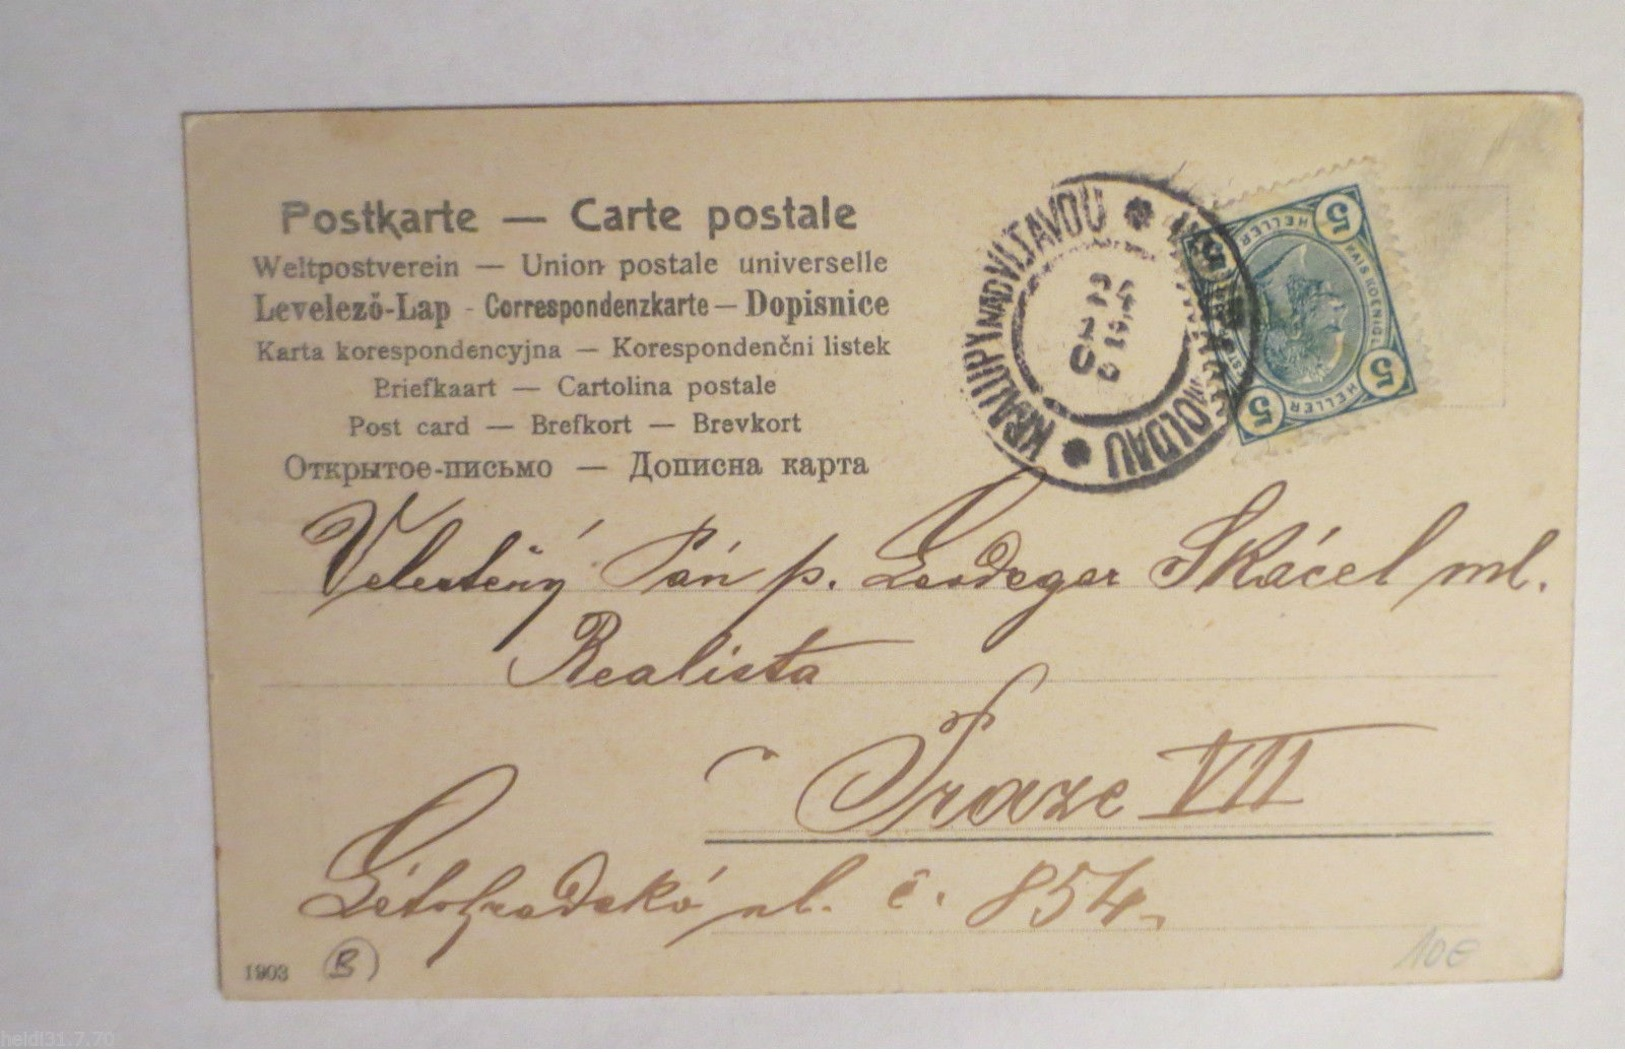 Postkarte — Carte postale
Weltpostverein — Union postale universelle
Levelező-Lap - Correspondenzkarte — Dopisnice
Karta korespondencyjna — Korespondenčni listek
Briefkaart — Cartolina postale
Post card — Brefkort — Brevkort
Открытое-письмо — Дописна карта
KRALUPY NAD VLTAVOU
MOLDAU
5 HELLER 5 HELLER 5
Pán p. Leodegar Skácel ml.
Realista
Praze VII
Letohradská ul. č. 854
1903
B
10€
heidi31.7.70